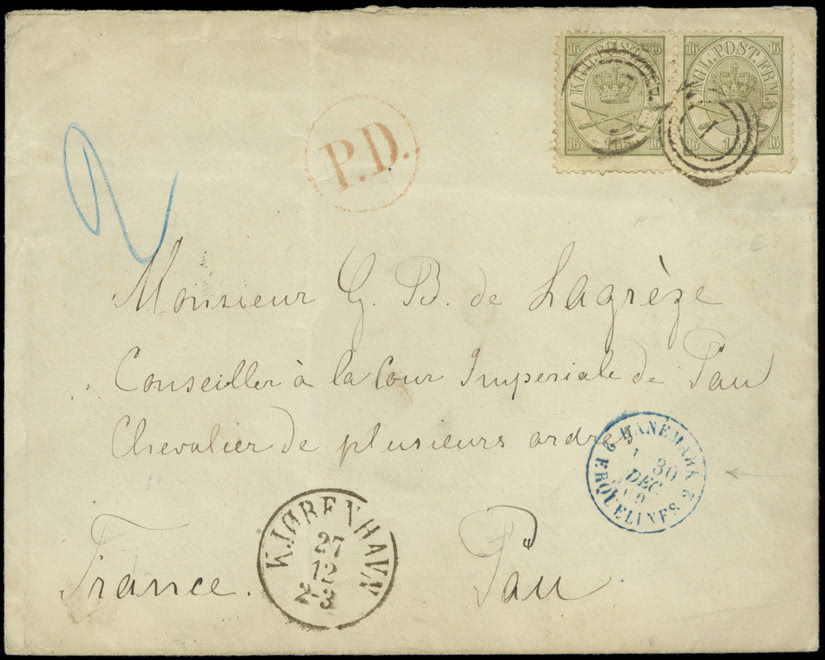 16 KONGL.POST.FRM. 16
16 16
16 KONGL.POST.FRM. 16
16 16
1
P.D.
2
Monsieur G. B. de Lagrèze
Conseiller à la Cour Imperiale de Pau
Chevalier de plusieurs ordres
6 DANEMARK
30
DEC
69
ERQUELINES 2
KJØBENHAVN
27
12
2-3
France. Pau.